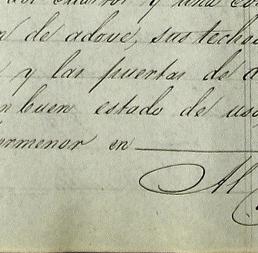 dos cuartos y una co
n de adove, sus techo
y las puertas de a
n buen estado de uso
ormenor en
Al